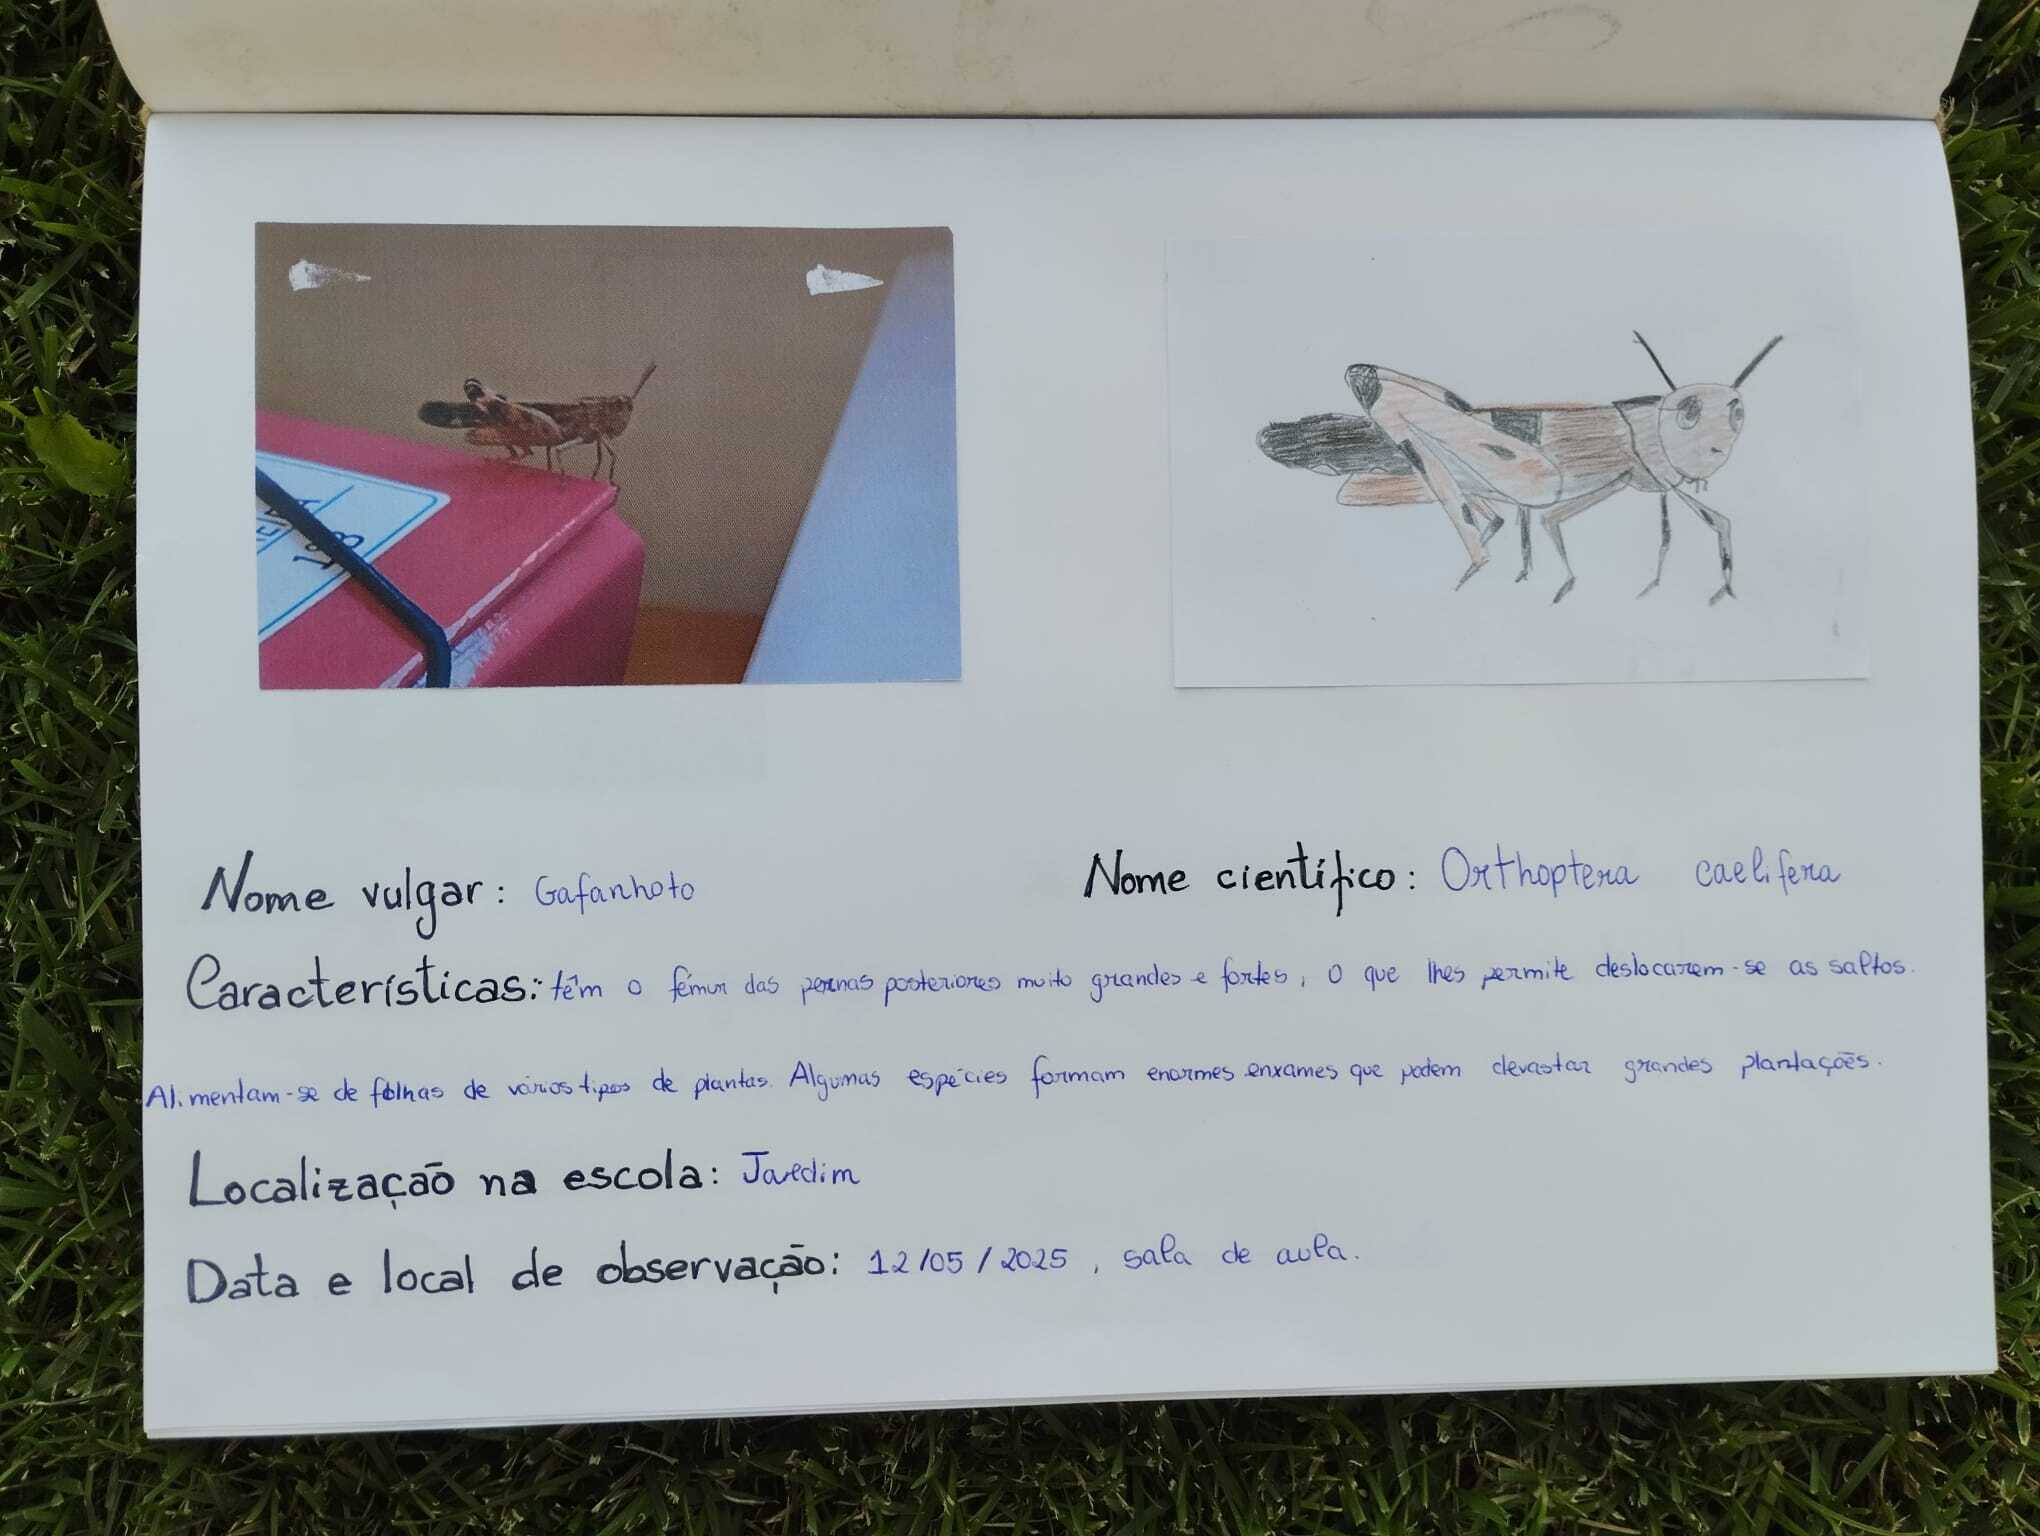 18
Nome vulgar: Gafanhoto
Nome científico: Orthoptera caelifera
Características: têm o fémur das pernas posteriores muito grandes e fortes, o que lhes permite deslocarem-se as saltos.
Alimentam-se de folhas de vários tipos de plantas. Algumas espécies formam enormes enxames que podem devastar grandes plantações.
Localização na escola: Jardim
Data e local de observação: 12/05/2025, sala de aula.